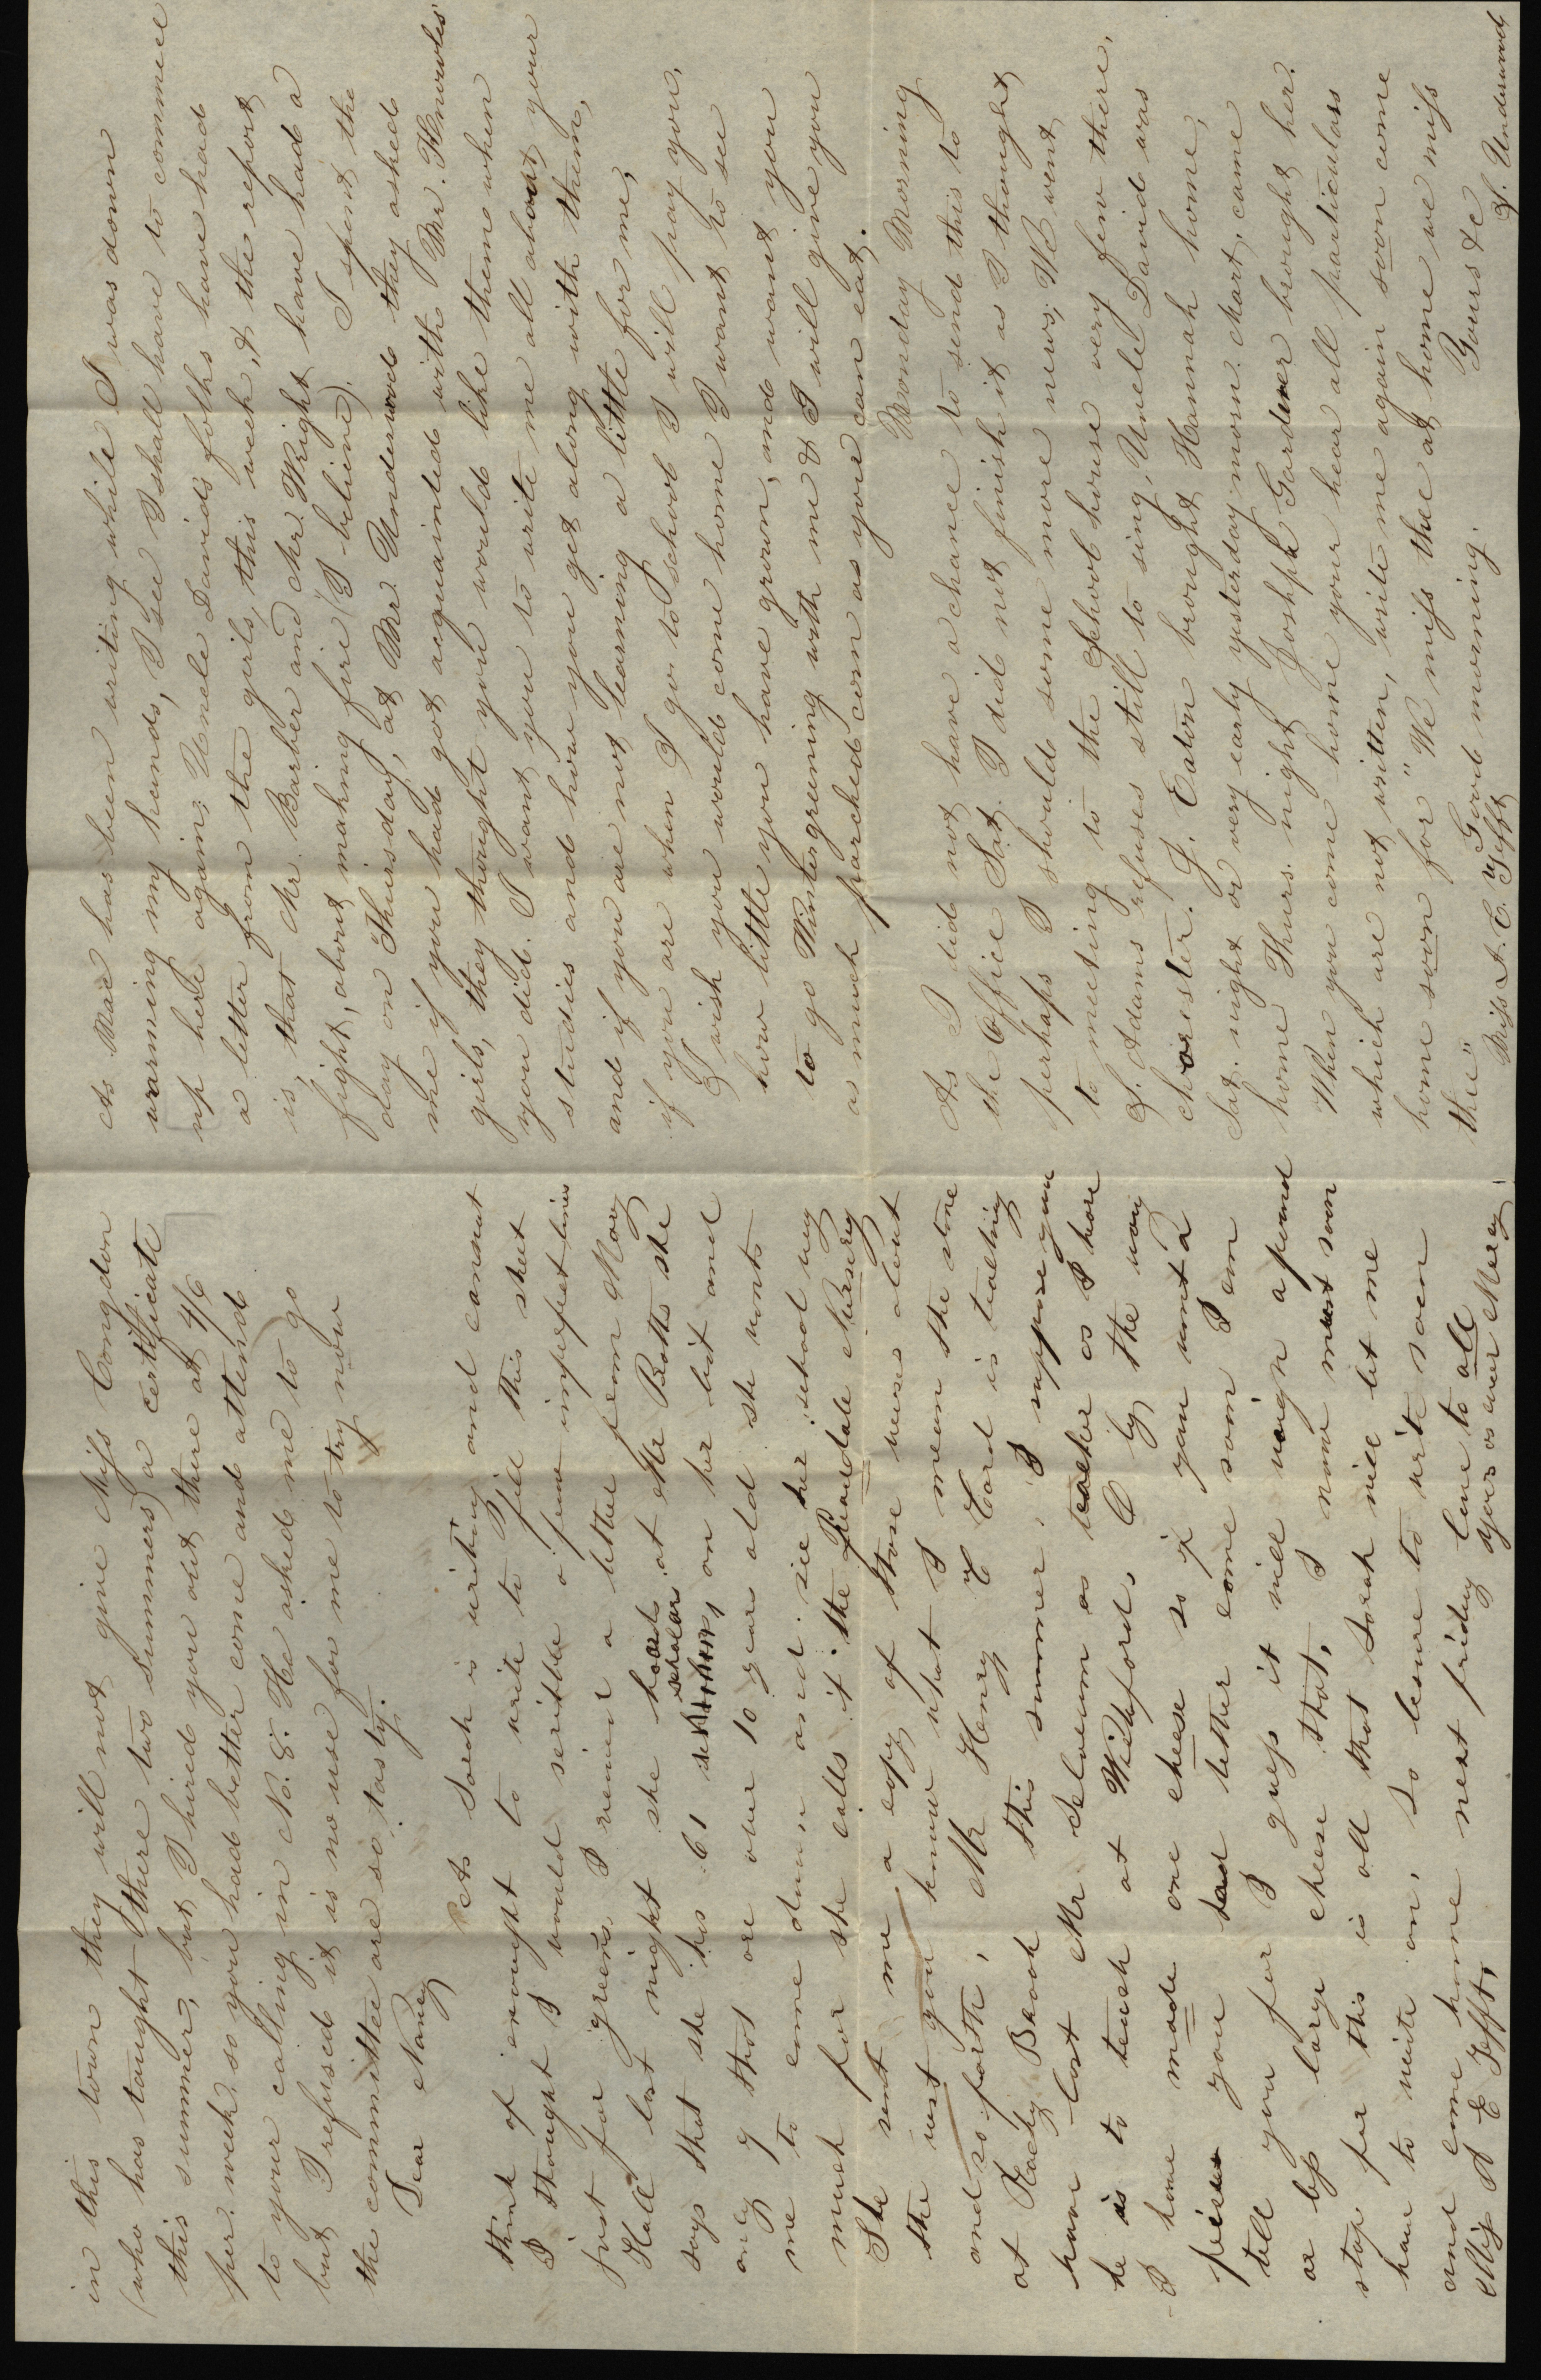 in this town they will not give Miss Congdon
(who has taught there two summers) a certificate
this summer, but I hired you out there at 4/6
per. week. so you had better come and attend
to your calling in No. 8. He asked me to go
but I refused it is no use for me to try now
the committee are so tasty.
Dear Nancy
As Sarah is writing and cannot
think of enough to write to fill this sheet
I thought I would scribble a few imperfect lines
just for greens. I received a letter from Mary
Hall last night she boards at Mr Potts she
says that she has 61 scholars on her list and
only 7 that are over 10 years old she wants
me to come down and see her school very
much for she calls it the Peacedale Nursery
She sent me a copy of those verses about
the west you know what I mean the stone
and so forth, Mr Henry C Card is teaching
at Rocky Brook this summer, I suppose you
have lost Mr Slocum as teacher as I hear
he is to teach at Wickford. O by the way
I have made one cheese so if you want a
piece you had better come soon I am
tell you for I guess it will weigh a pound
or by large cheese that, I now must soon
stop for this is all that Sarah will let me
have to write on, so leave to write soon
and come home next friday love to all
Miss N E Tefft, yours as ever Mercy
As Mac has been writing while I was down
warming my hands, I see I shall have to commence
up here again; Uncle Davids folks have had
a letter from the girls, this week, & the report
is, that Mr. Barber and Mr. Wright have had a
fight, about making fire (I believe). I spent the
day on Thursday, at Mr. Underwood they asked
me if you had got acquainted with Mr. Knowles'
girls, they thought you would like them when
you did. I want you to write me all about your
studies and how you get along with them,
and if you are not learning a little for me,
if you are when I go to school I will pay you.
I wish you would come home I want to see
how little you have grown, and want you
to go Wintergreening with me & I will give you
as much parched corn as you can eat.
Monday Morning
As I did not have a chance to send this to
the Office Sat. I did not finish it as I thought
perhaps I should some more news; We went
to meeting to the School house very few there,
S. Adams refuses still to sing, Uncle David was
chorister. J. Eaton brought Hannah home,
Sat. night or very early yesterday morn. Mart. came
home Thurs. night Joshpa Gardiner brought her.
When you come home your hear all particulars
which are not written, write me again soon come
home soon for "We miss thee at home we miss
thee" Good morning. Yours &c
Miss N. E. Tefft S. Underwood,